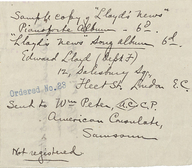 Sample copy of "Lloyd's News"
Pianoforte Album - 6D.
"Lloyd's News" Song album 6d.
Edward Lloyd (dept F)
12, Salisbury Sq,
Fleet St. London E.C.
Ordered No. 23
Sent to Wm Peter, A.C.C.P.
American Consulate,
Samsoun
Not registered